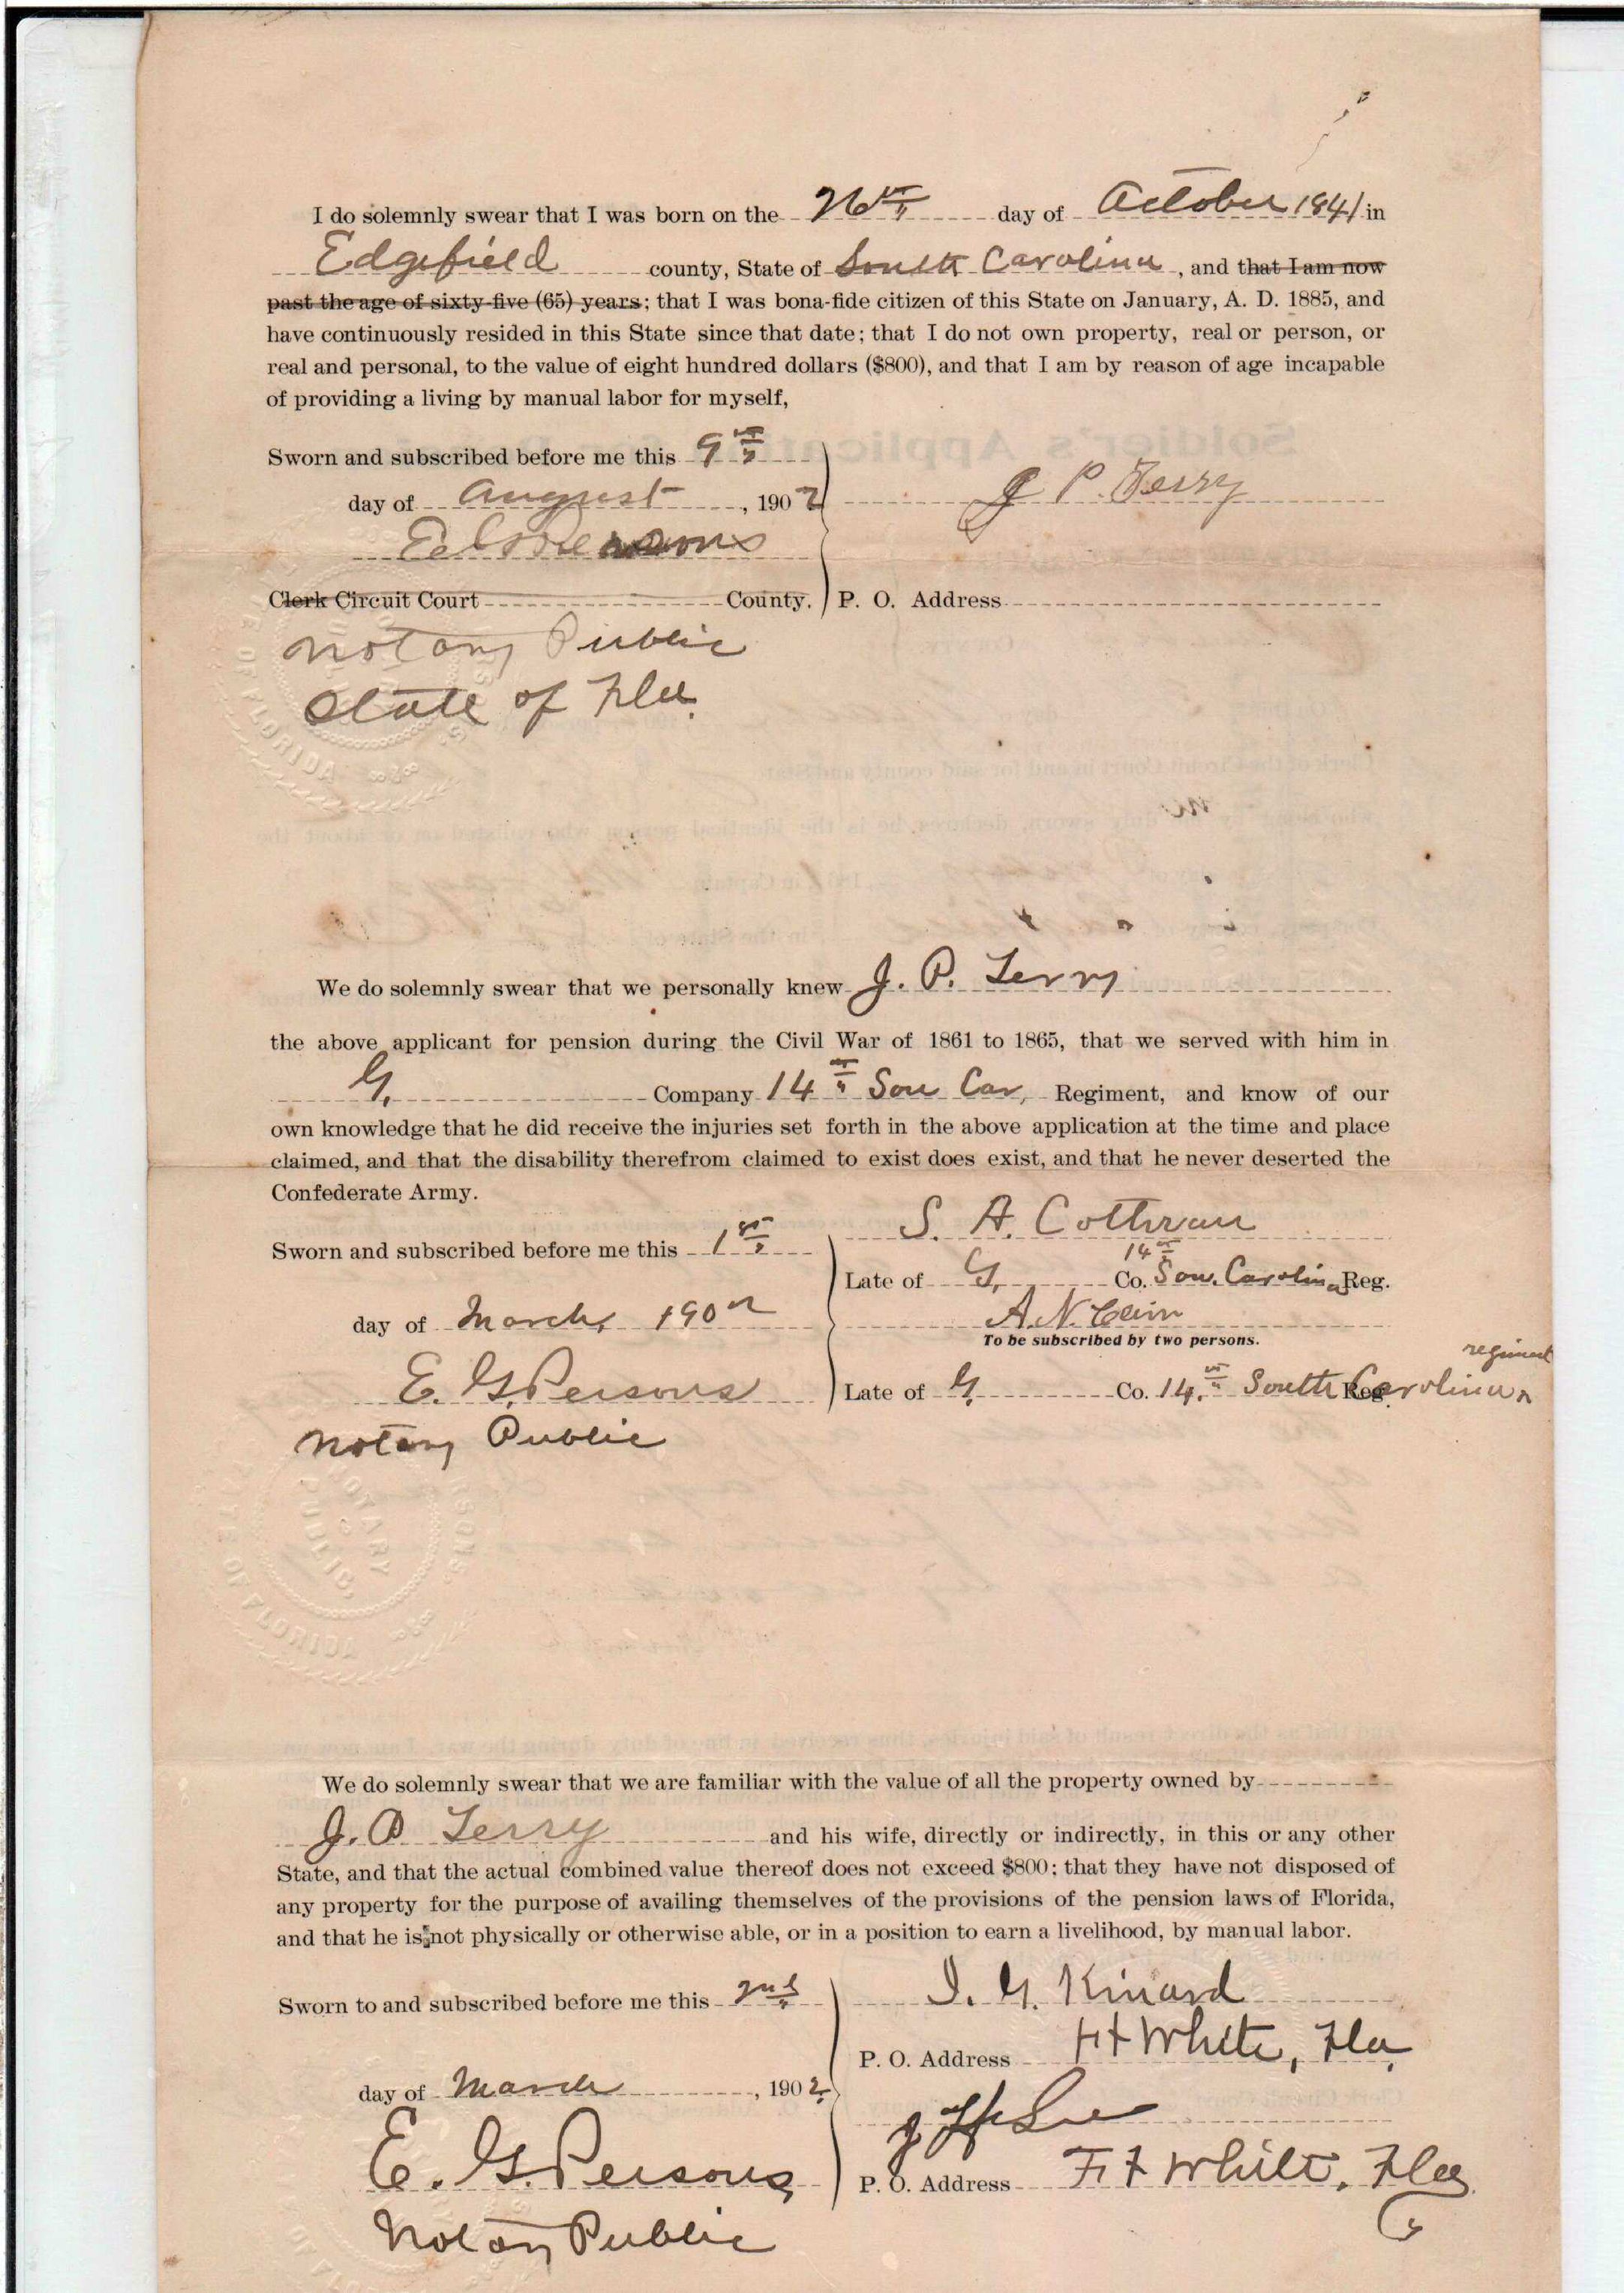 I do solemnly swear that I was born on the 26th day of October 1841 in
Edgefield county, State of South Carolina, and that I am now
past the age of sixty-five (65) years; that I was bona-fide citizen of this State on January, A. D. 1885, and
have continuously resided in this State since that date; that I do not own property, real or person, or
real and personal, to the value of eight hundred dollars ($800), and that I am by reason of age incapable
of providing a living by manual labor for myself,
Sworn and subscribed before me this 9th
day of August, 1902
J P. Terry
E G Persons
Clerk Circuit Court County. P. O. Address
Notary Public
State of Fla.
We do solemnly swear that we personally knew J. P. Terry
the above applicant for pension during the Civil War of 1861 to 1865, that we served with him in
G. Company 14th Sou Car, Regiment, and know of our
own knowledge that he did receive the injuries set forth in the above application at the time and place
claimed, and that the disability therefrom claimed to exist does exist, and that he never deserted the
Confederate Army.
S. A. Cothran
Sworn and subscribed before me this 1st
Late of G. Co. 14th Sou. Carolina Reg.
day of March, 1902
A. N.
To be subscribed by two persons.
E. G. Persons
Late of G. Co. 14th South Carolina Reg. regiment
Notary Public
NOTARY PUBLIC
STATE OF FLORIDA
We do solemnly swear that we are familiar with the value of all the property owned by
J. P Terry and his wife, directly or indirectly, in this or any other
State, and that the actual combined value thereof does not exceed $800; that they have not disposed of
any property for the purpose of availing themselves of the provisions of the pension laws of Florida,
and that he is not physically or otherwise able, or in a position to earn a livelihood, by manual labor.
Sworn to and subscribed before me this 2nd
I. G. Kinard
P. O. Address Ft White, Fla.
day of March, 1902
E. G. Persons
P. O. Address Ft White, Fla
Notary Public